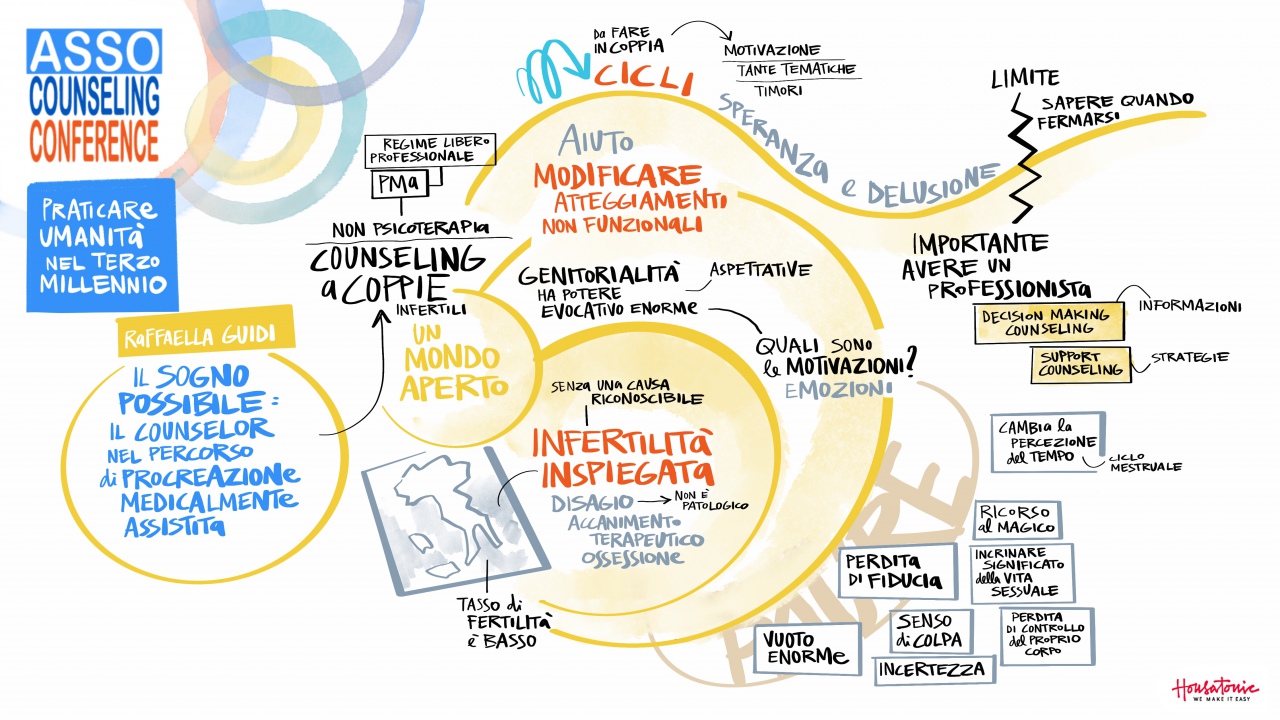 ASSO
COUNSELING
CONFERENCE
PRATICARE
UMANITÀ
NEL TERZO
MILLENNIO
RAFFAELLA GUIDI
IL SOGNO
POSSIBILE:
IL COUNSELOR
NEL PERCORSO
di PROCREAZIONE
MEDICALMENTE
ASSISTITA
REGIME LIBERO
PROFESSIONALE
PMA
NON PSICOTERAPIA
COUNSELING
a COPPIE
INFERTILI
UN
MONDO
APERTO
DA FARE
IN COPPIA
CICLI
MOTIVAZIONE
TANTE TEMATICHE
TIMORI
SPERANZA e DELUSIONE
AIUTO
MODIFICARE
ATTEGGIAMENTI
NON FUNZIONALI
GENITORIALITÀ
HA POTERE
EVOCATIVO ENORME
ASPETTATIVE
QUALI SONO
le MOTIVAZIONI?
EMOZIONI
SENZA UNA CAUSA
RICONOSCIBILE
INFERTILITÀ
INSPIEGATA
DISAGIO
NON È
PATOLOGICO
ACCANIMENTO
TERAPEUTICO
OSSESSIONE
TASSO di
FERTILITÀ
è BASSO
LIMITE
SAPERE QUANDO
FERMARSI
IMPORTANTE
AVERE UN
PROFESSIONISTA
DECISION MAKING
COUNSELING
INFORMAZIONI
SUPPORT
COUNSELING
STRATEGIE
PAURE
CAMBIA la
PERCEZIONE
del TEMPO
CICLO
MESTRUALE
RICORSO
al MAGICO
PERDITA
DI FIDUCIA
INCRINARE
SIGNIFICATO
della VITA
SESSUALE
SENSO
di COLPA
PERDITA
DI CONTROLLO
del PROPRIO
CORPO
VUOTO
ENORME
INCERTEZZA
Housatonic
WE MAKE IT EASY